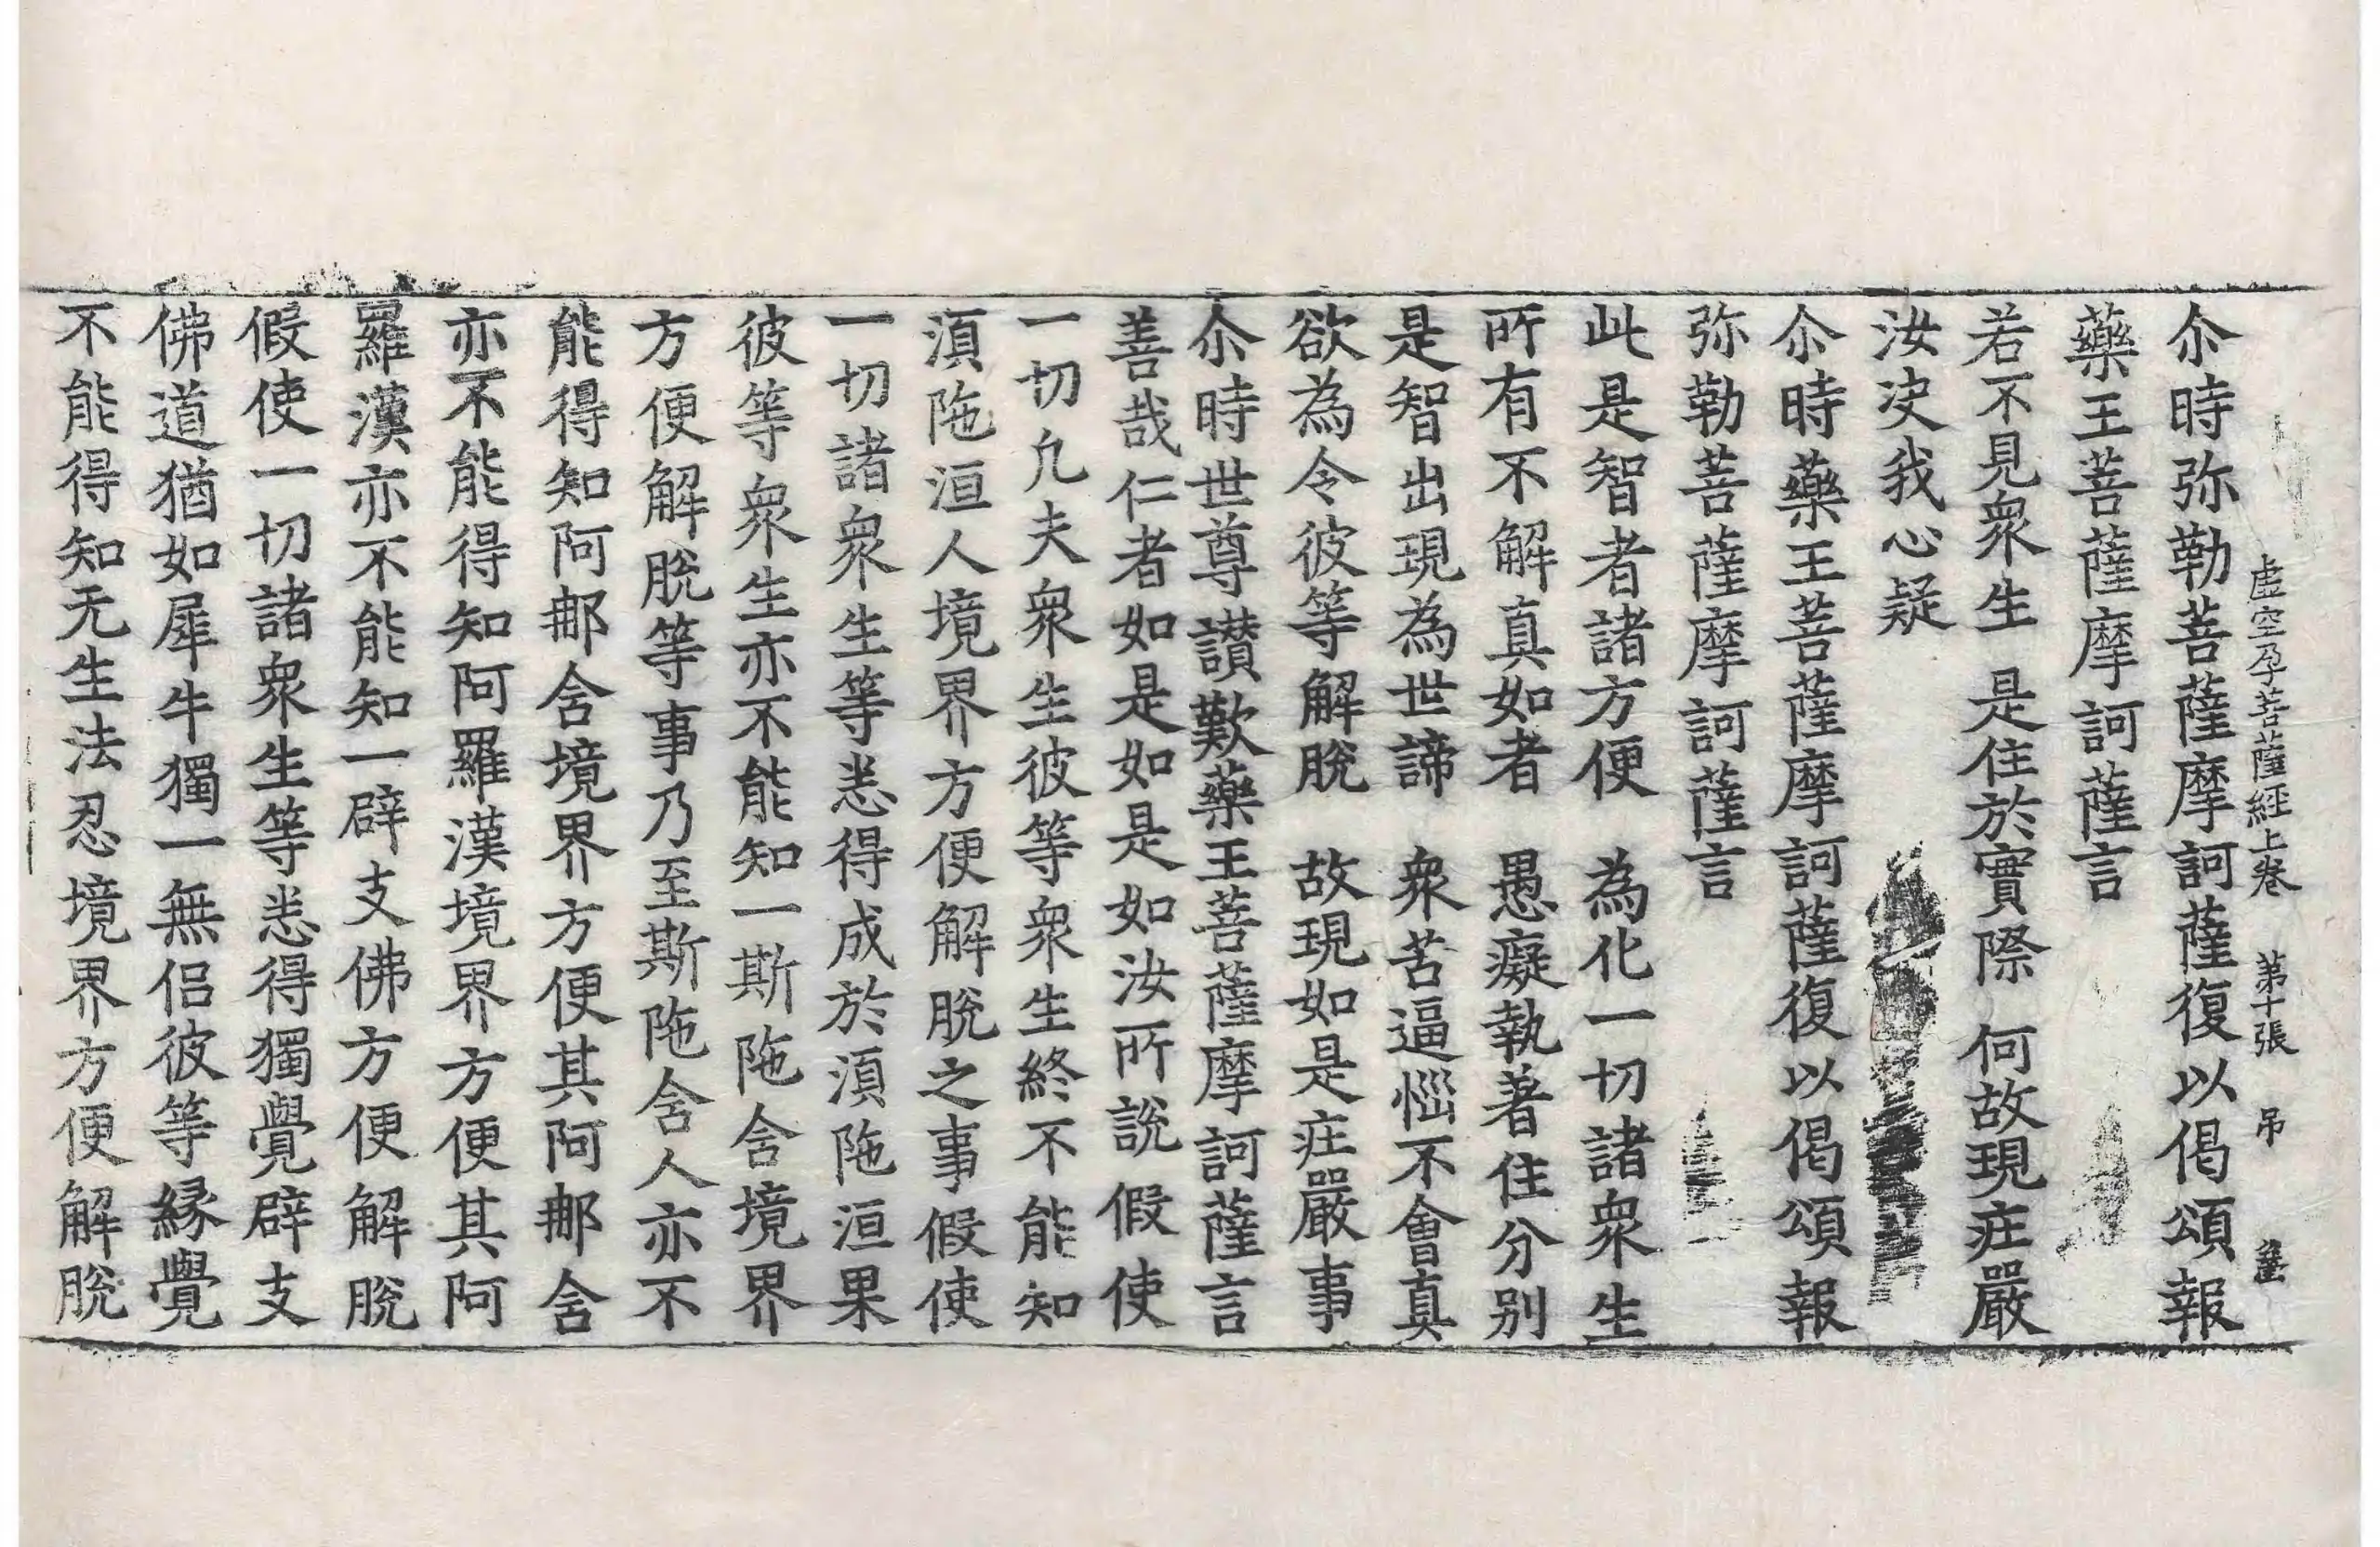 虛空孕菩薩經上卷　第十張　吊
尒時弥勒菩薩摩訶薩復以偈頌報
藥王菩薩摩訶薩言
若不見衆生　是住於實際　何故現庄嚴
汝决我心疑
尒時藥王菩薩摩訶薩復以偈頌報
弥勒菩薩摩訶薩言
此是智者諸方便　為化一切諸衆生
所有不解真如者　愚癡執著住分别
是智出現為世諦　衆苦逼惱不會真
欲為令彼等解脫　故現如是庄嚴事
尒時世尊讃歎藥王菩薩摩訶薩言
善哉仁者如是如是如汝所說假使
一切凡夫衆生彼等衆生終不能知
湏陁洹人境界方便解脫之事假使
一切諸衆生等悉得成於湏陁洹果
彼等衆生亦不能知一斯陁含境界
方便解脫等事乃至斯陁含人亦不
能得知阿那含境界方便其阿那含
亦不能得知阿羅漢境界方便其阿
羅漢亦不能知一辟支佛方便解脫
假使一切諸衆生等悉得獨覺辟支
佛道猶如犀牛獨一無侣彼等縁覺
不能得知无生法忍境界方便解脫